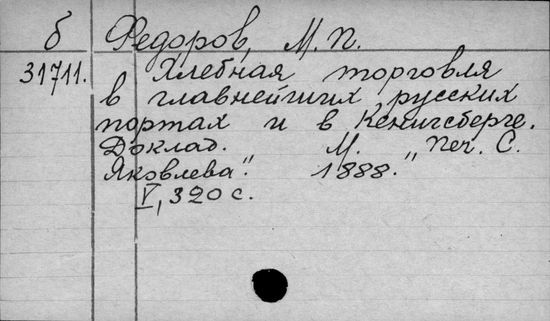 б Федоров, М. П.
31711. Хлебная торговля
в главнейших русских
портах и в Кенигсберге.
Доклад. М. „Печ. С.
Яковлева". 1888.
V, 320 с.